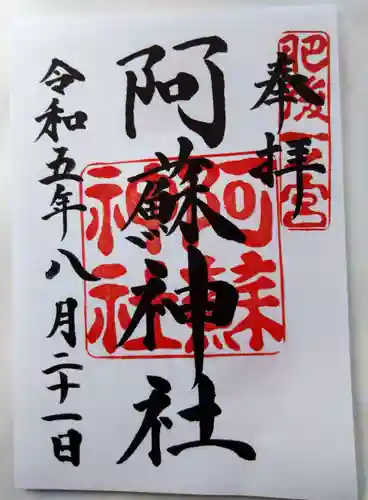 奉拝
肥後一宮
阿蘇神社
阿蘇神社
令和五年八月二十一日